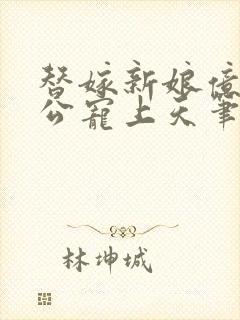 替嫁新娘億
公寵上天筆
林坤城